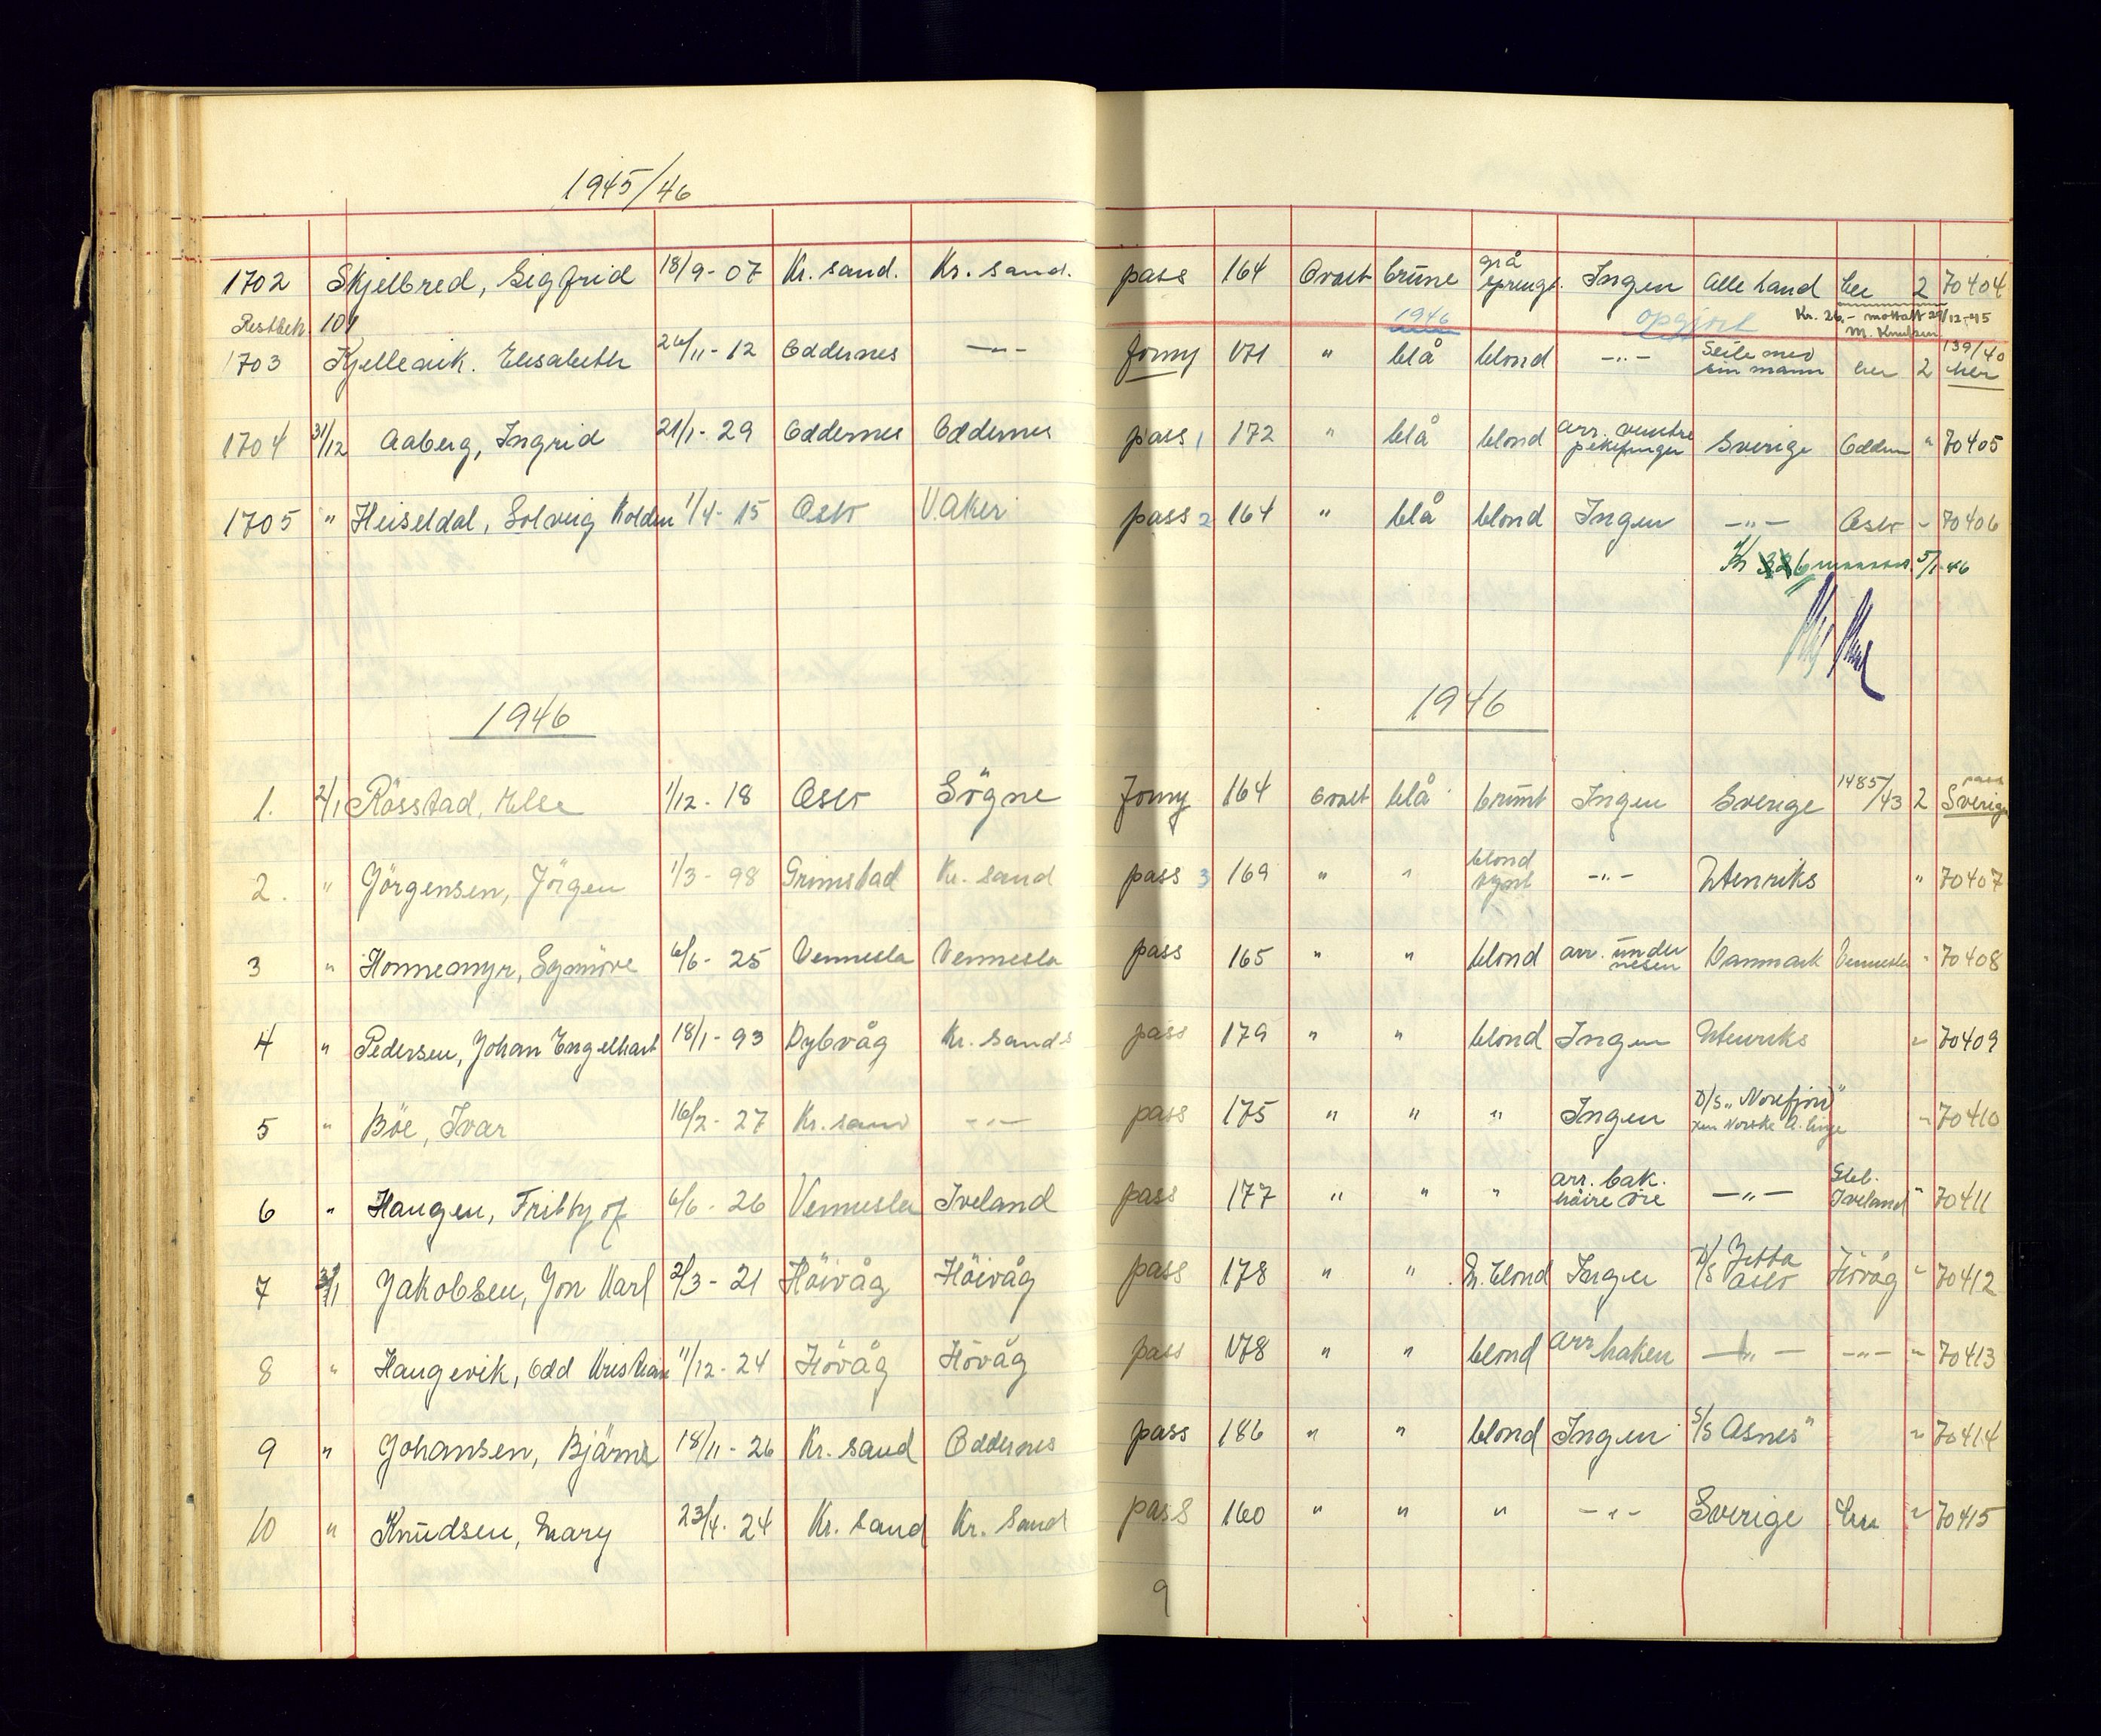 1945/46
1702 Skjelbred, Sigfrid 18/9-07 Kr. sand. Kr. sand. pass 164 Ovalt brune grå spreng. Ingen Alle land her 2 70404
Restbeh. 101 1946 opgjort Kr. 26.- mottatt 29/12-45
M. Knudsen
1703 Kjellevik. Elisabeth 26/11-12 Oddernes —"— Forny 171 " blå blond —"— Seile med sin mann her 2 139/40 her
1704 31/12 Aaberg, Ingrid 21/1-29 Oddernes Oddernes pass 1 172 " blå blond arr. venstre pekefinger Sverige Oddern " 70405
1705 " Heiseldal, Solveig Holden 1/4-15 Oslo V.Aker pass 2 164 " blå blond Ingen —"— Oslo " 70406
Kr 5/1-46
1946 1946
1. 2/1 Rösstad, Else 1/12-18 Oslo Sögne Forny 164 Ovalt blå brunt Ingen Sverige 1485/43 2 pass Sverige
2. " Görgensen, Jörgen 1/3-98 Grimstad Kr. sand pass 3 169 " " blond tynt —"— Utenriks " 70407
3 " Honnemyr, Synnöve 6/6-25 Vennesla Vennesla pass 165 " " blond arr. under nesen Danmark Vennesla " 70408
4 " Pedersen, Johan Engelhart 18/1-93 Dybvåg Kr. sands pass 179 " " blond Ingen Utenriks " 70409
5 " Böe, Ivar 16/2-27 Kr. sand —"— pass 175 " " " Ingen D/S „Norefjord" Den Norske A. linje " 70410
6 " Haugen, Frithjof 6/6-26 Vennesla Iveland pass 177 " " " arr. bak. höire öre —"— Iveland " 70411
7 3/1 Jakobsen, Jon Karl 2/3-21 Höivåg Höivåg pass 178 " " M. blond Ingen D/S Jetta Oslo Hövåg " 70412
8 " Haugevik, Odd Kristian 11/12-24 Hövåg Hövåg pass 178 " " blond arr haken —"— —"— " 70413
9 " Johansen, Bjärne 18/11-26 Kr. sand Oddernes pass 186 " " blond Ingen S/S Asnes" " 70414
10 " Knudsen, Mary 23/4-24 Kr. sand Kr. sand pass 160 " " " —"— Sverige her " 70415
9